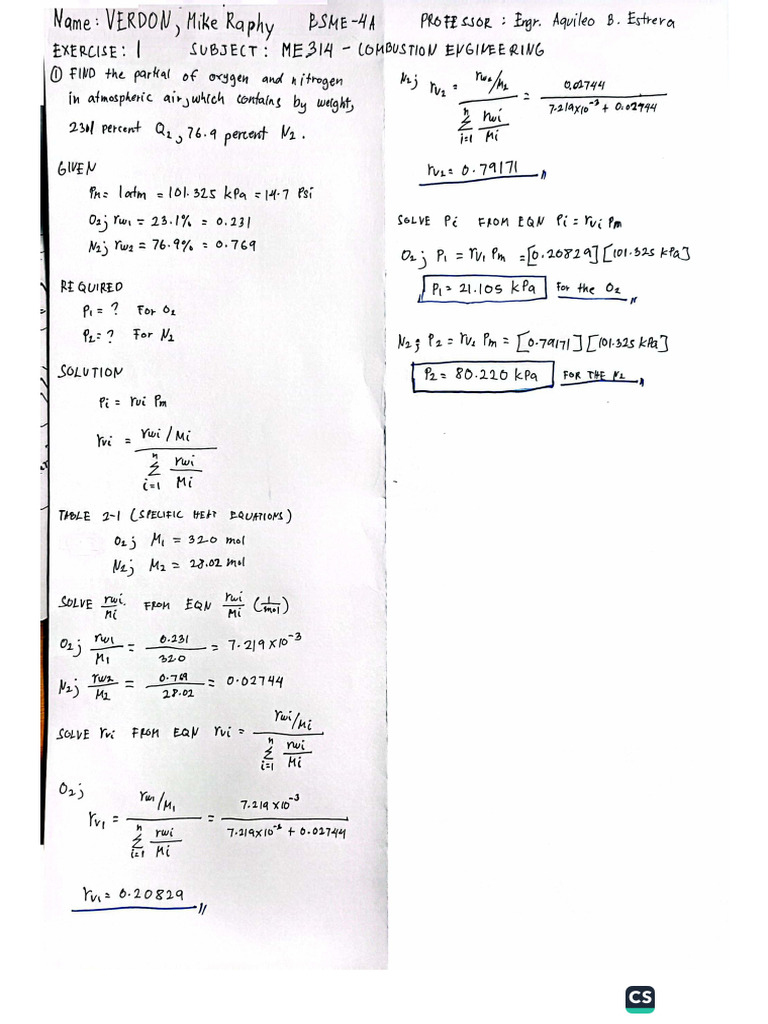 Name: VERDON, Mike Raphy BSME-4A PROFESSOR : Engr. Aquileo B. Estrera
EXERCISE: 1 SUBJECT: ME 314 - COMBUSTION ENGINEERING
① FIND the partial of oxygen and nitrogen
in atmospheric air, which contains by weight,
23.1 percent O2, 76.9 percent N2.
GIVEN
Pm = 1 atm = 101.325 kPa = 14.7 Psi
O2; rw1 = 23.1% = 0.231
N2; rw2 = 76.9% = 0.769
REQUIRED
P1 = ? For O2
P2 = ? For N2
SOLUTION
Pi = rvi Pm
rvi = (rwi / Mi) / (n Σ i=1 rwi/Mi)
TABLE 2-1 (SPECIFIC HEAT EQUATIONS)
O2; M1 = 32.0 mol
N2; M2 = 28.02 mol
SOLVE rwi/Mi FROM EQN rwi/Mi (1/mol)
O2; rw1/M1 = 0.231/32.0 = 7.219 x 10^-3
N2; rw2/M2 = 0.769/28.02 = 0.02744
SOLVE rvi FROM EQN rvi = (rwi/Mi) / (n Σ i=1 rwi/Mi)
O2;
rv1 = (rw1/M1) / (n Σ i=1 rwi/Mi) = 7.219 x 10^-3 / (7.219 x 10^-3 + 0.02744)
rv1 = 0.20829
N2; rv2 = (rw2/M2) / (n Σ i=1 rwi/Mi) = 0.02744 / (7.219 x 10^-3 + 0.02744)
rv2 = 0.79171
SOLVE Pi FROM EQN Pi = rvi Pm
O2; P1 = rv1 Pm = [0.20829][101.325 kPa]
P1 = 21.105 kPa For the O2
N2; P2 = rv2 Pm = [0.79171][101.325 kPa]
P2 = 80.220 kPa FOR THE N2
CS